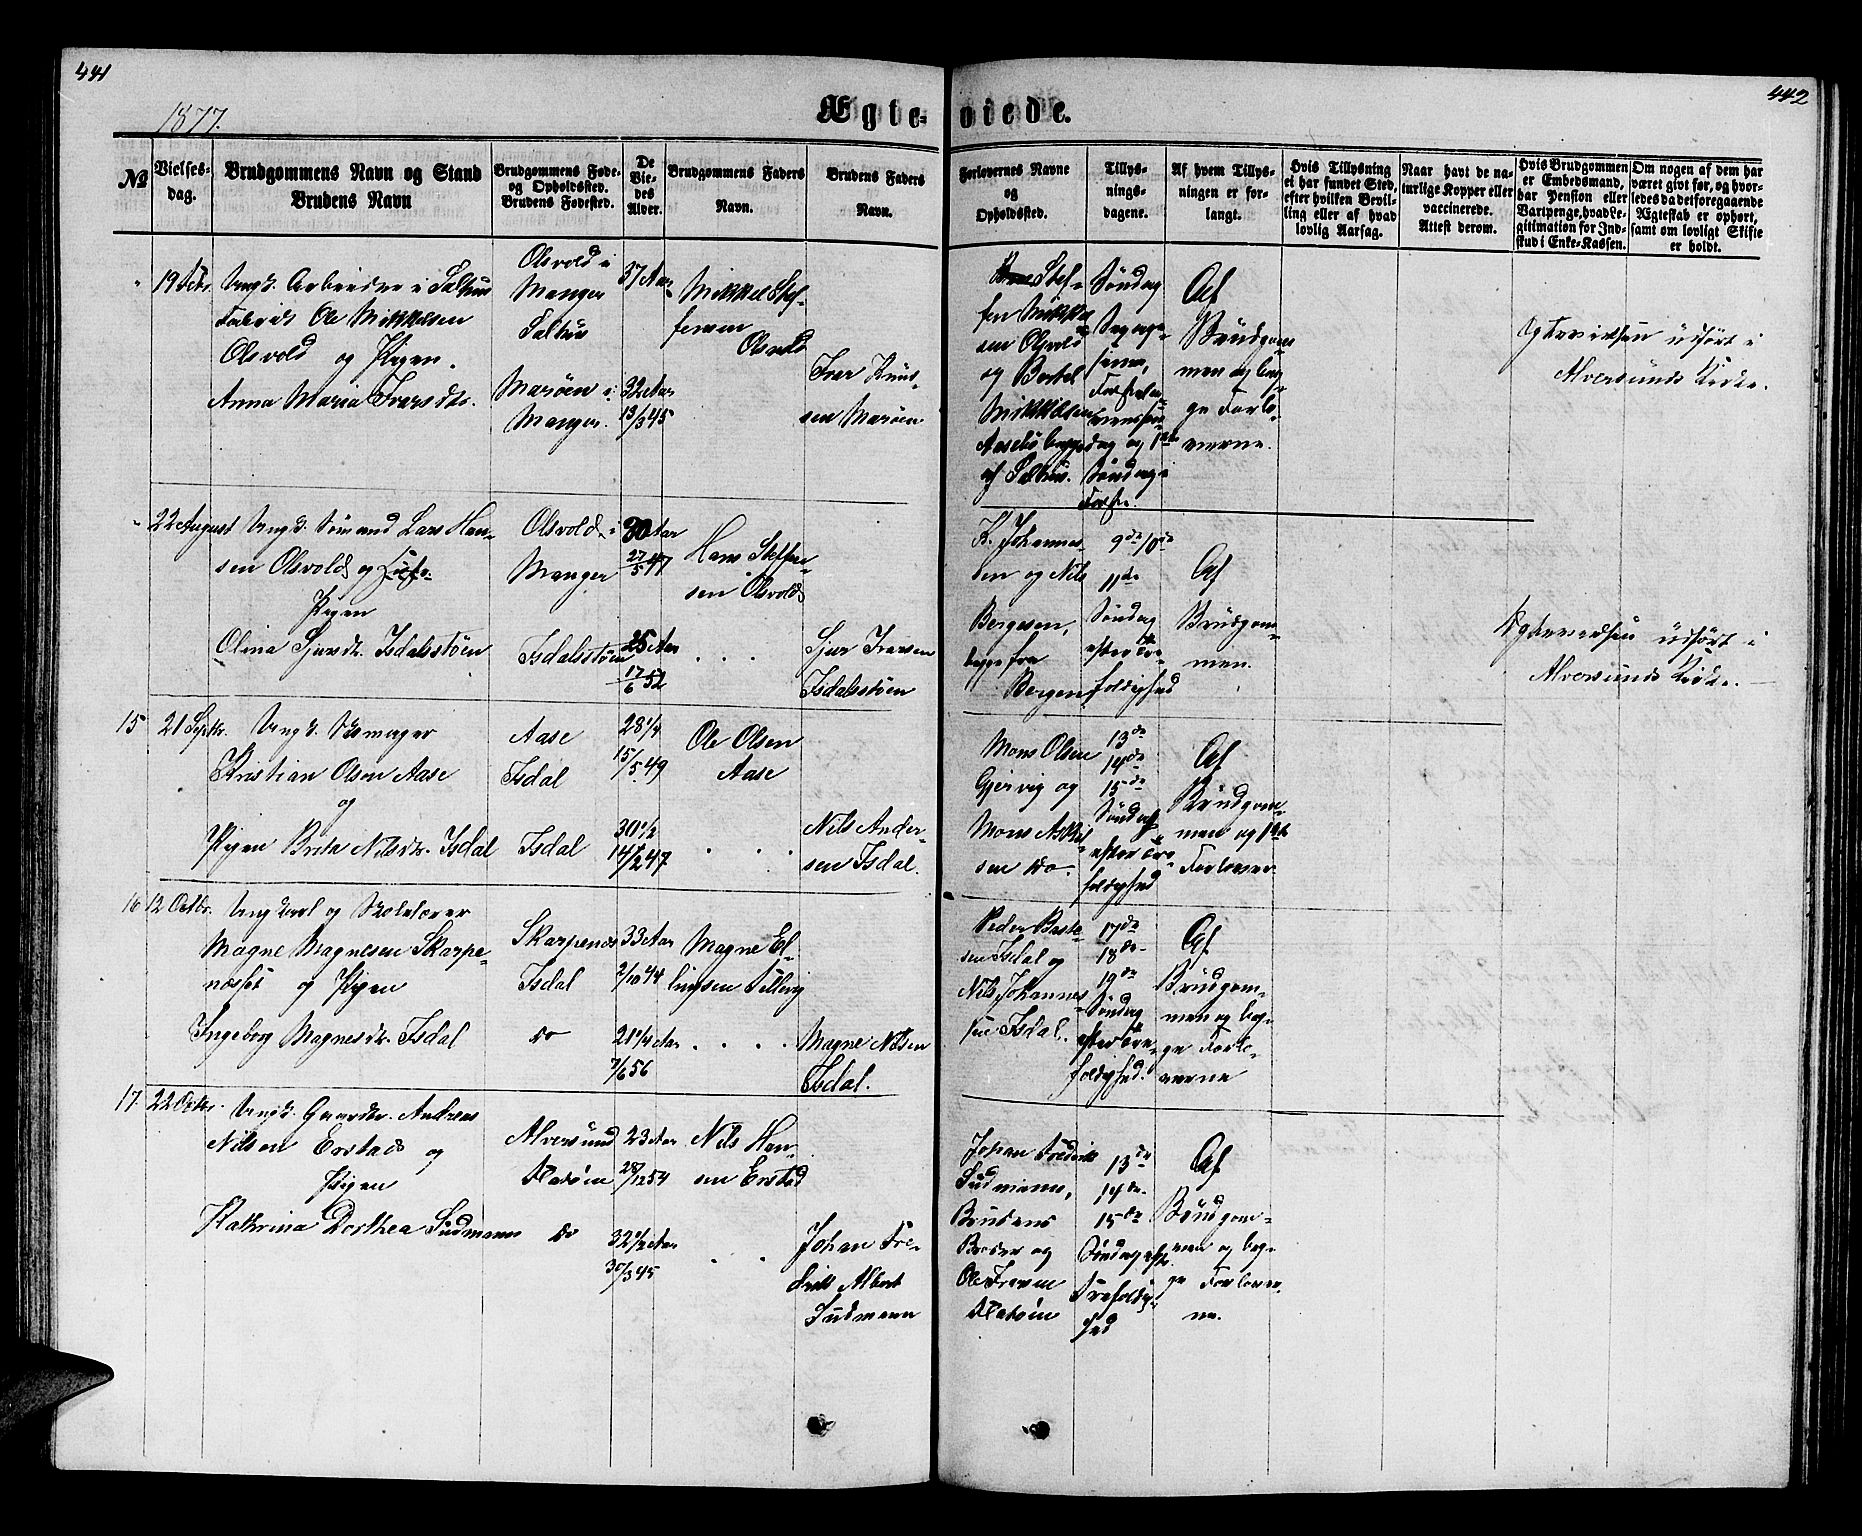 441
442
1877.
Ægte-
viede.
№
Vielses-
dag.
Brudgommens Navn og Stand
Brudens Navn
Brudgommens Føde-
og Opholdssted.
Brudens Fødested.
De
Vie-
des
Alder.
Brudgommens Faders
Navn.
Brudens Faders
Navn.
Forlovernes Navne
og
Opholdssted.
Tillys-
nings-
dagene.
Af hvem Tillys-
ningen er for-
langt.
Hvis Tillysning
ei har fundet Sted,
efter hvilken Bevil-
ling eller af hvad
lovlig Aarsag.
Naar havt de na-
turlige Kopper eller
vaccinerede.
Attest derom.
Hvis Brudgommen
er Embedsmand,
har Pension eller
Vartpenge, hvad Le-
gitimation for Ind-
skud i Enke-Kassen.
Om nogen af dem har
været givt før, og hvor-
ledes da det foregaaende
Ægteskab er ophørt,
samt om lovligt Skifte
er holdt.
Ungk. Arbeider i Salhus
Ole Mikkelsen
Olsvold og Pigen
Anna Maria Ivarsdtr.
Olsvold i
Manger
Salhus
Marøen i
Manger.
37 Aar
32 Aar
13/3 45
Mikkel Stef-
fensen
Olsvold
Iver Knud-
sen Marøen
Stef-
fen Mikkel-
sen Olsvold
og Bertel
Mikkelsen
begge
af Salhus.
Søndag
og 1ste
Søndag i
Faste.
Af
Brudgom-
men og beg-
ge Forlo-
verne.
Ægtevielsen udført i
Alversunds Kirke.
22 August
Ungk. Sømand Lars Han-
sen Olsvold og
Pigen
Olina Sjursdtr. Isdalsstøen
Olsvold i
Manger
Isdalsstøen
30 Aar
27/5 47
25 Aar
17/6 52
Hans Steffen-
sen Olsvold
Sjur Ivarsen
Isdalsstøen
K. Johannes-
sen og Nils
Bergesen,
begge fra
Bergen
9de 10de
11de
Søndag
efter Tre-
foldighed
Af
Brudgom-
men.
Ægtevielsen udført i
Alversunds Kirke.
15
21 Septbr.
Ungk. Skomager
Kristian Olsen Aase
og
Pigen Brita Nilsdtr. Isdal
Aase
Isdal
Isdal
28 1/4
15/5 49
30 1/2
14/2 47
Ole Olsen
Aase
Nils Ander-
sen Isdal.
Mons Olsen
Gjervig og
Mons Askil-
sen do.
13de
14de
15de
Søndag
efter Tre-
foldighed
Af
Brudgom-
men og 1ste
Forlover
16
12 Octbr.
Ungkarl og
Magne Magnesen Skarpe-
næsset og Pigen
Ingeborg Magnesdtr. Isdal
Skarpenes
Isdal
do
33 Aar
2/10 44
21 1/4 Aar
7/6 56
Magne El-
lingsen
Magne Nilsen
Isdal.
Peder
Isdal og
Nils Johannes-
sen Isdal.
17de
18de
19de
Søndag
efter Tre-
foldighed.
Af
Brudgom-
men og beg-
ge Forlo-
verne
17.
22 Octbr.
Ungk. Gaardbr. Andreas
Nilsen Erstad og
Pigen
Kathrina Dorthea Südmann
Alversund
Flatøen
do
23 Aar
28/12 54
32 1/2 Aar
30/3 45
Nils Han-
sen Erstad
Johan Fre-
drik Albert
Südmann
Johan Fredrik
Südmann,
Brudens
Broder og
Ole Iversen
Flatøen
13de
14de
15de
Søndag eftr.
Trefoldig-
hed
Af
Brudgom-
men og beg-
ge Forlover-
ne.